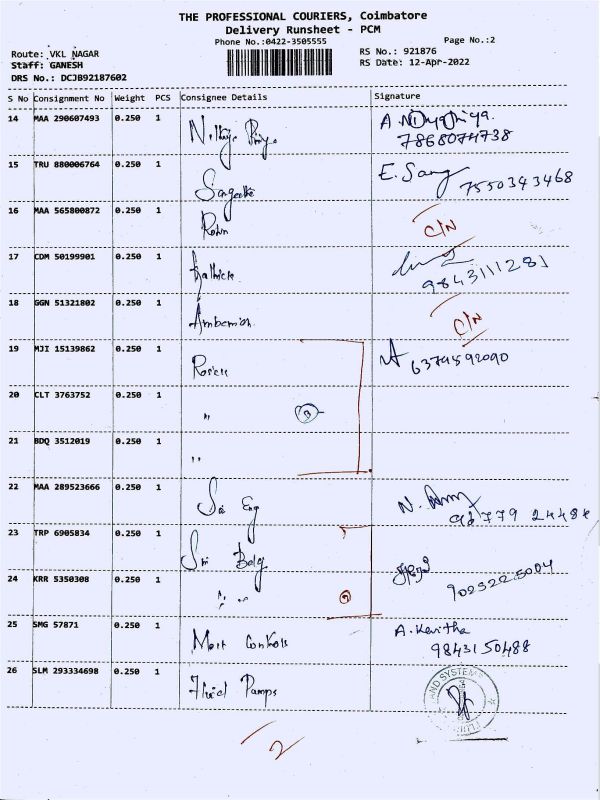 THE PROFESSIONAL COURIERS, Coimbatore
Delivery Runsheet - PCM
Phone No.:0422-3505555
Page No.:2
Route: VKL NAGAR
RS No.: 921876
Staff: GANESH
RS Date: 12-Apr-2022
DRS No.: DCJB92187602
S No Consignment No Weight PCS Consignee Details Signature
14 MAA 290607493 0.250 1
7868074738
15 TRU 880006764 0.250 1 Sangeetha E. Sang 7550343468
16 MAA 565800872 0.250 1 Robin C/N
17 CDM 50199901 0.250 1 Kathick
9843111281
18 GGN 51321802 0.250 1 C/N
19 MJI 15139862 0.250 1 6374592090
20 CLT 3763752 0.250 1 " 3
21 BDQ 3512019 0.250 1 "
22 MAA 289523666 0.250 1 Sai Eng N.
23 TRP 6905834 0.250 1 Sri Balaji
24 KRR 5350308 0.250 1 " "
25 SMG 57871 0.250 1 Controls A. Kavitha
9843150488
26 SLM 293334698 0.250 1 Fluid Pumps AND SYSTEMS
2